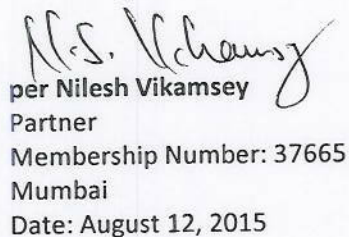 N.S. Vikamsey
per Nilesh Vikamsey
Partner
Membership Number: 37665
Mumbai
Date: August 12, 2015